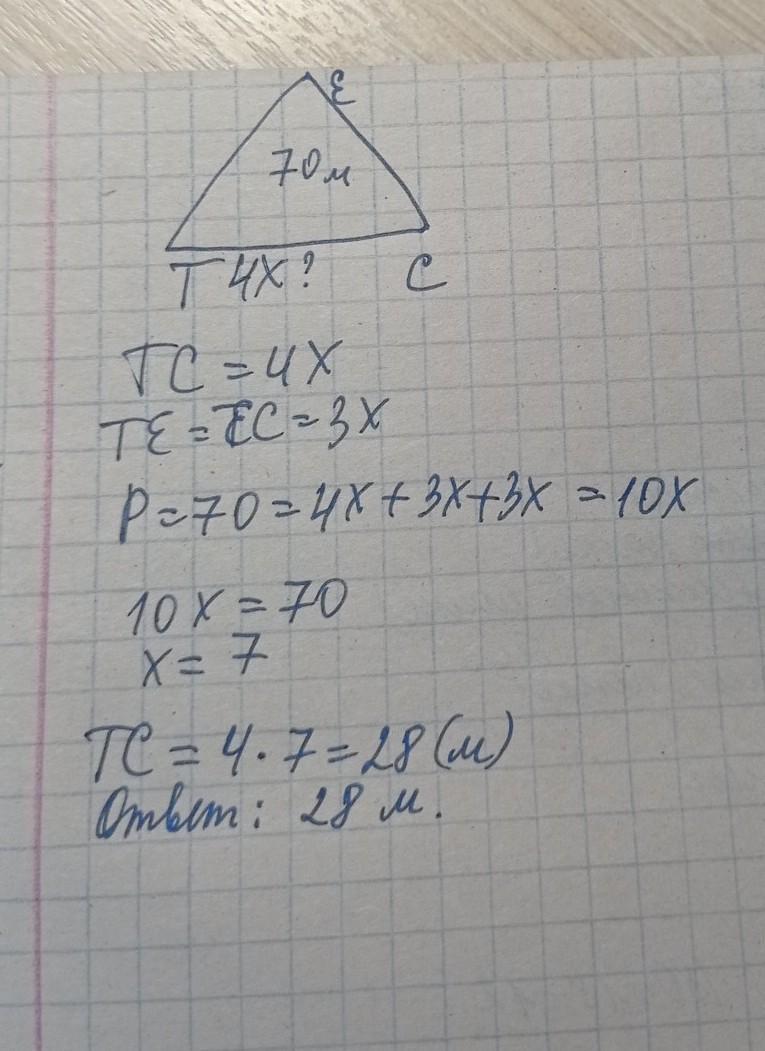 E
70м
T 4x? C
TC = 4x
TE = EC = 3x
P = 70 = 4x + 3x + 3x = 10x
10x = 70
x = 7
TC = 4 · 7 = 28 (м)
Ответ: 28 м.